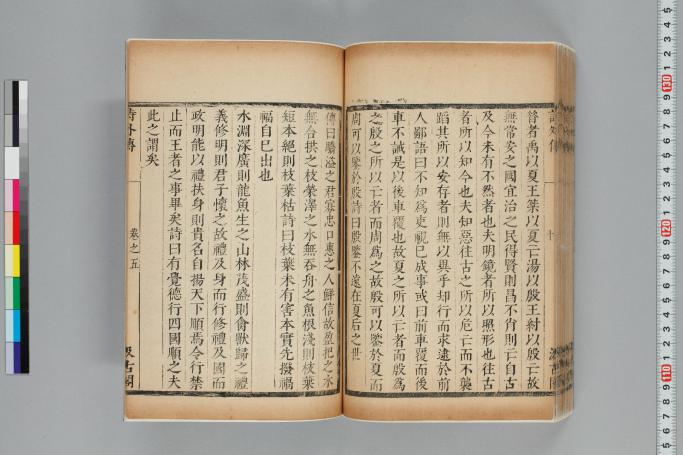 昔者禹以夏王桀以夏亡湯以殷王紂以殷亡故
無常安之國宜治之民得賢則昌不肖則亡自古
及今未有不然者也夫明鏡者所以照形也往古
者所以知今也夫知惡往古之所以危亡而不襲
蹈其所以安存者則無以異乎却行而求逮於前
人鄙語曰不知為吏視已成事或曰前車覆而後
車不誡是以後車覆也故夏之所以亡者而殷為
之殷之所以亡者而周為之故殷可以鑒於夏而
周可以鑒於殷詩曰殷鑒不遠在夏后之世
傳曰驕溢之君寡忠口惠之人鮮信故盈把之木
無合拱之枝榮澤之水無吞舟之魚根淺則枝葉
短本絕則枝葉枯詩曰枝葉未有害本實先撥禍
福自己出也
水淵深廣則龍魚生之山林茂盛則禽獸歸之禮
義修明則君子懷之故禮及身而行修禮及國而
政明能以禮扶身則貴名自揚天下順焉令行禁
止而王者之事畢矣詩曰有覺德行四國順之夫
此之謂矣
詩外傳
卷之五
汲古閣